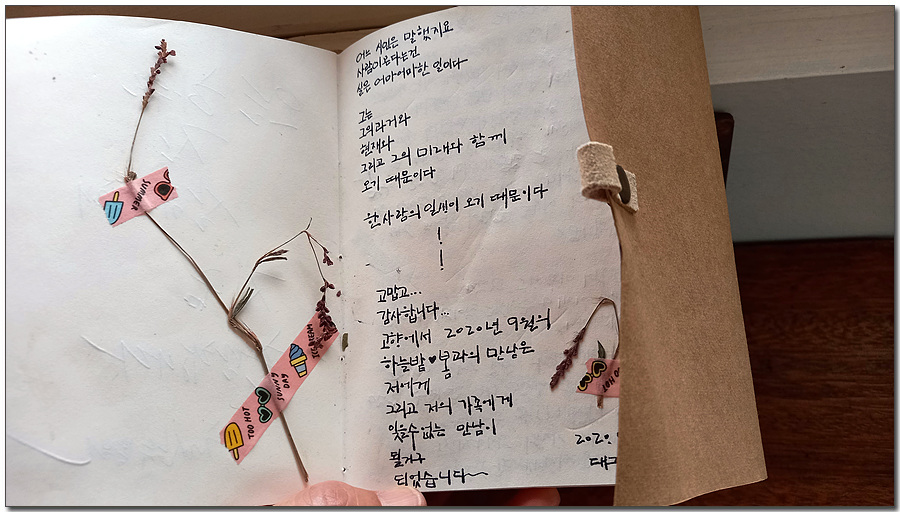 SUMMER
ICE CREAM
SUNNY DAY
TOO HOT
어느 시인은 말했지요
사람이 온다는건
실은 어마어마한 일이다
그는
그의 과거와
현재와
그리고 그의 미래와 함께
오기 때문이다
한 사람의 일생이 오기 때문이다
!
!
고맙고...
감사합니다...
고향에서 2020년 9월의
하늘밤♥봄과의 만남은
저에게
그리고 저의 가족에게
잊을수없는 만남이
되었습니다~
TOO HOT
2020.
대구